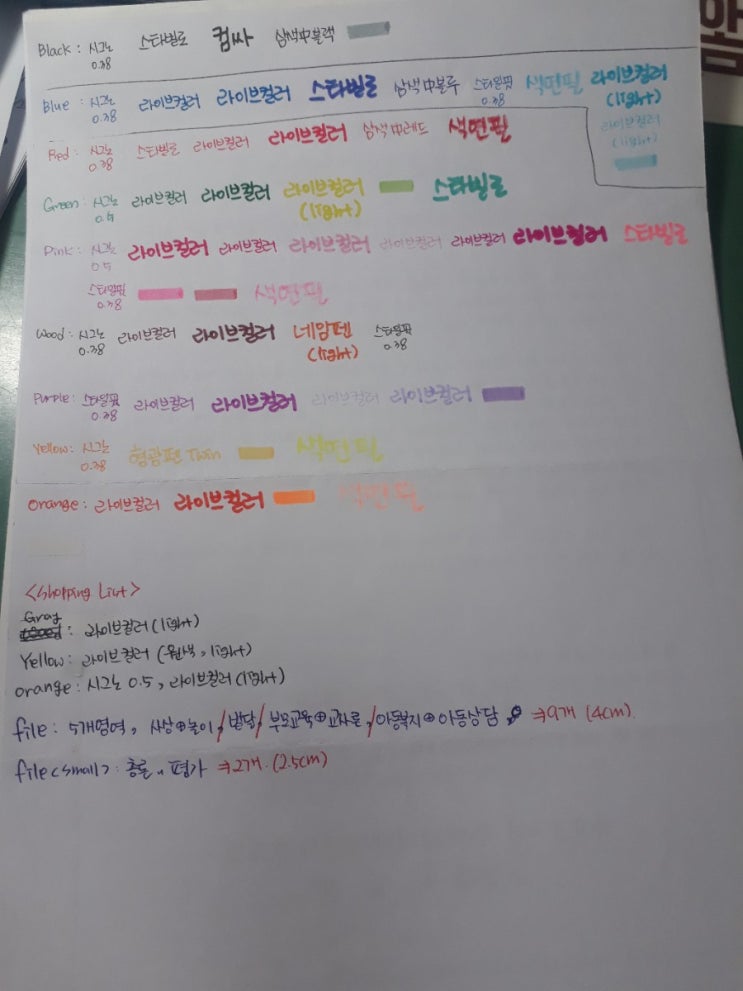 Black : 시그노 0.38 스타빌로 컴싸 삼색中블랙
Blue : 시그노 0.38 라이브컬러 라이브컬러 스타빌로 삼색中블루 스타일핏 0.38 색연필 라이브컬러 (light)
라이브컬러 (light)
Red : 시그노 0.38 스타빌로 라이브컬러 라이브컬러 삼색中레드 색연필
Green : 시그노 라이브컬러 라이브컬러 라이브컬러 (light) 스타빌로
Pink : 시그노 0.5 라이브컬러 라이브컬러 라이브컬러 라이브컬러 라이브컬러 라이브컬러 스타빌로
스타일핏 0.38 색연필
Wood : 시그노 0.38 라이브컬러 라이브컬러 네임펜 (light) 스타일핏 0.38
Purple : 스타일핏 0.38 라이브컬러 라이브컬러 라이브컬러 라이브컬러
Yellow : 시그노 0.38 형광펜 Twin 색연필
Orange : 라이브컬러 라이브컬러 색연필
<Shopping List>
Gray : 라이브컬러 (light)
Yellow : 라이브컬러 (원색, light)
Orange : 시그노 0.5, 라이브컬러 (light)
file : 5개영역, 사상⊕놀이 / 발달 / 부모교육⊕교사론 / 아동복지⊕아동상담, ⇒ 9개 (4cm).
file<small> : 총론, 평가 ⇒ 2개. (2.5cm)